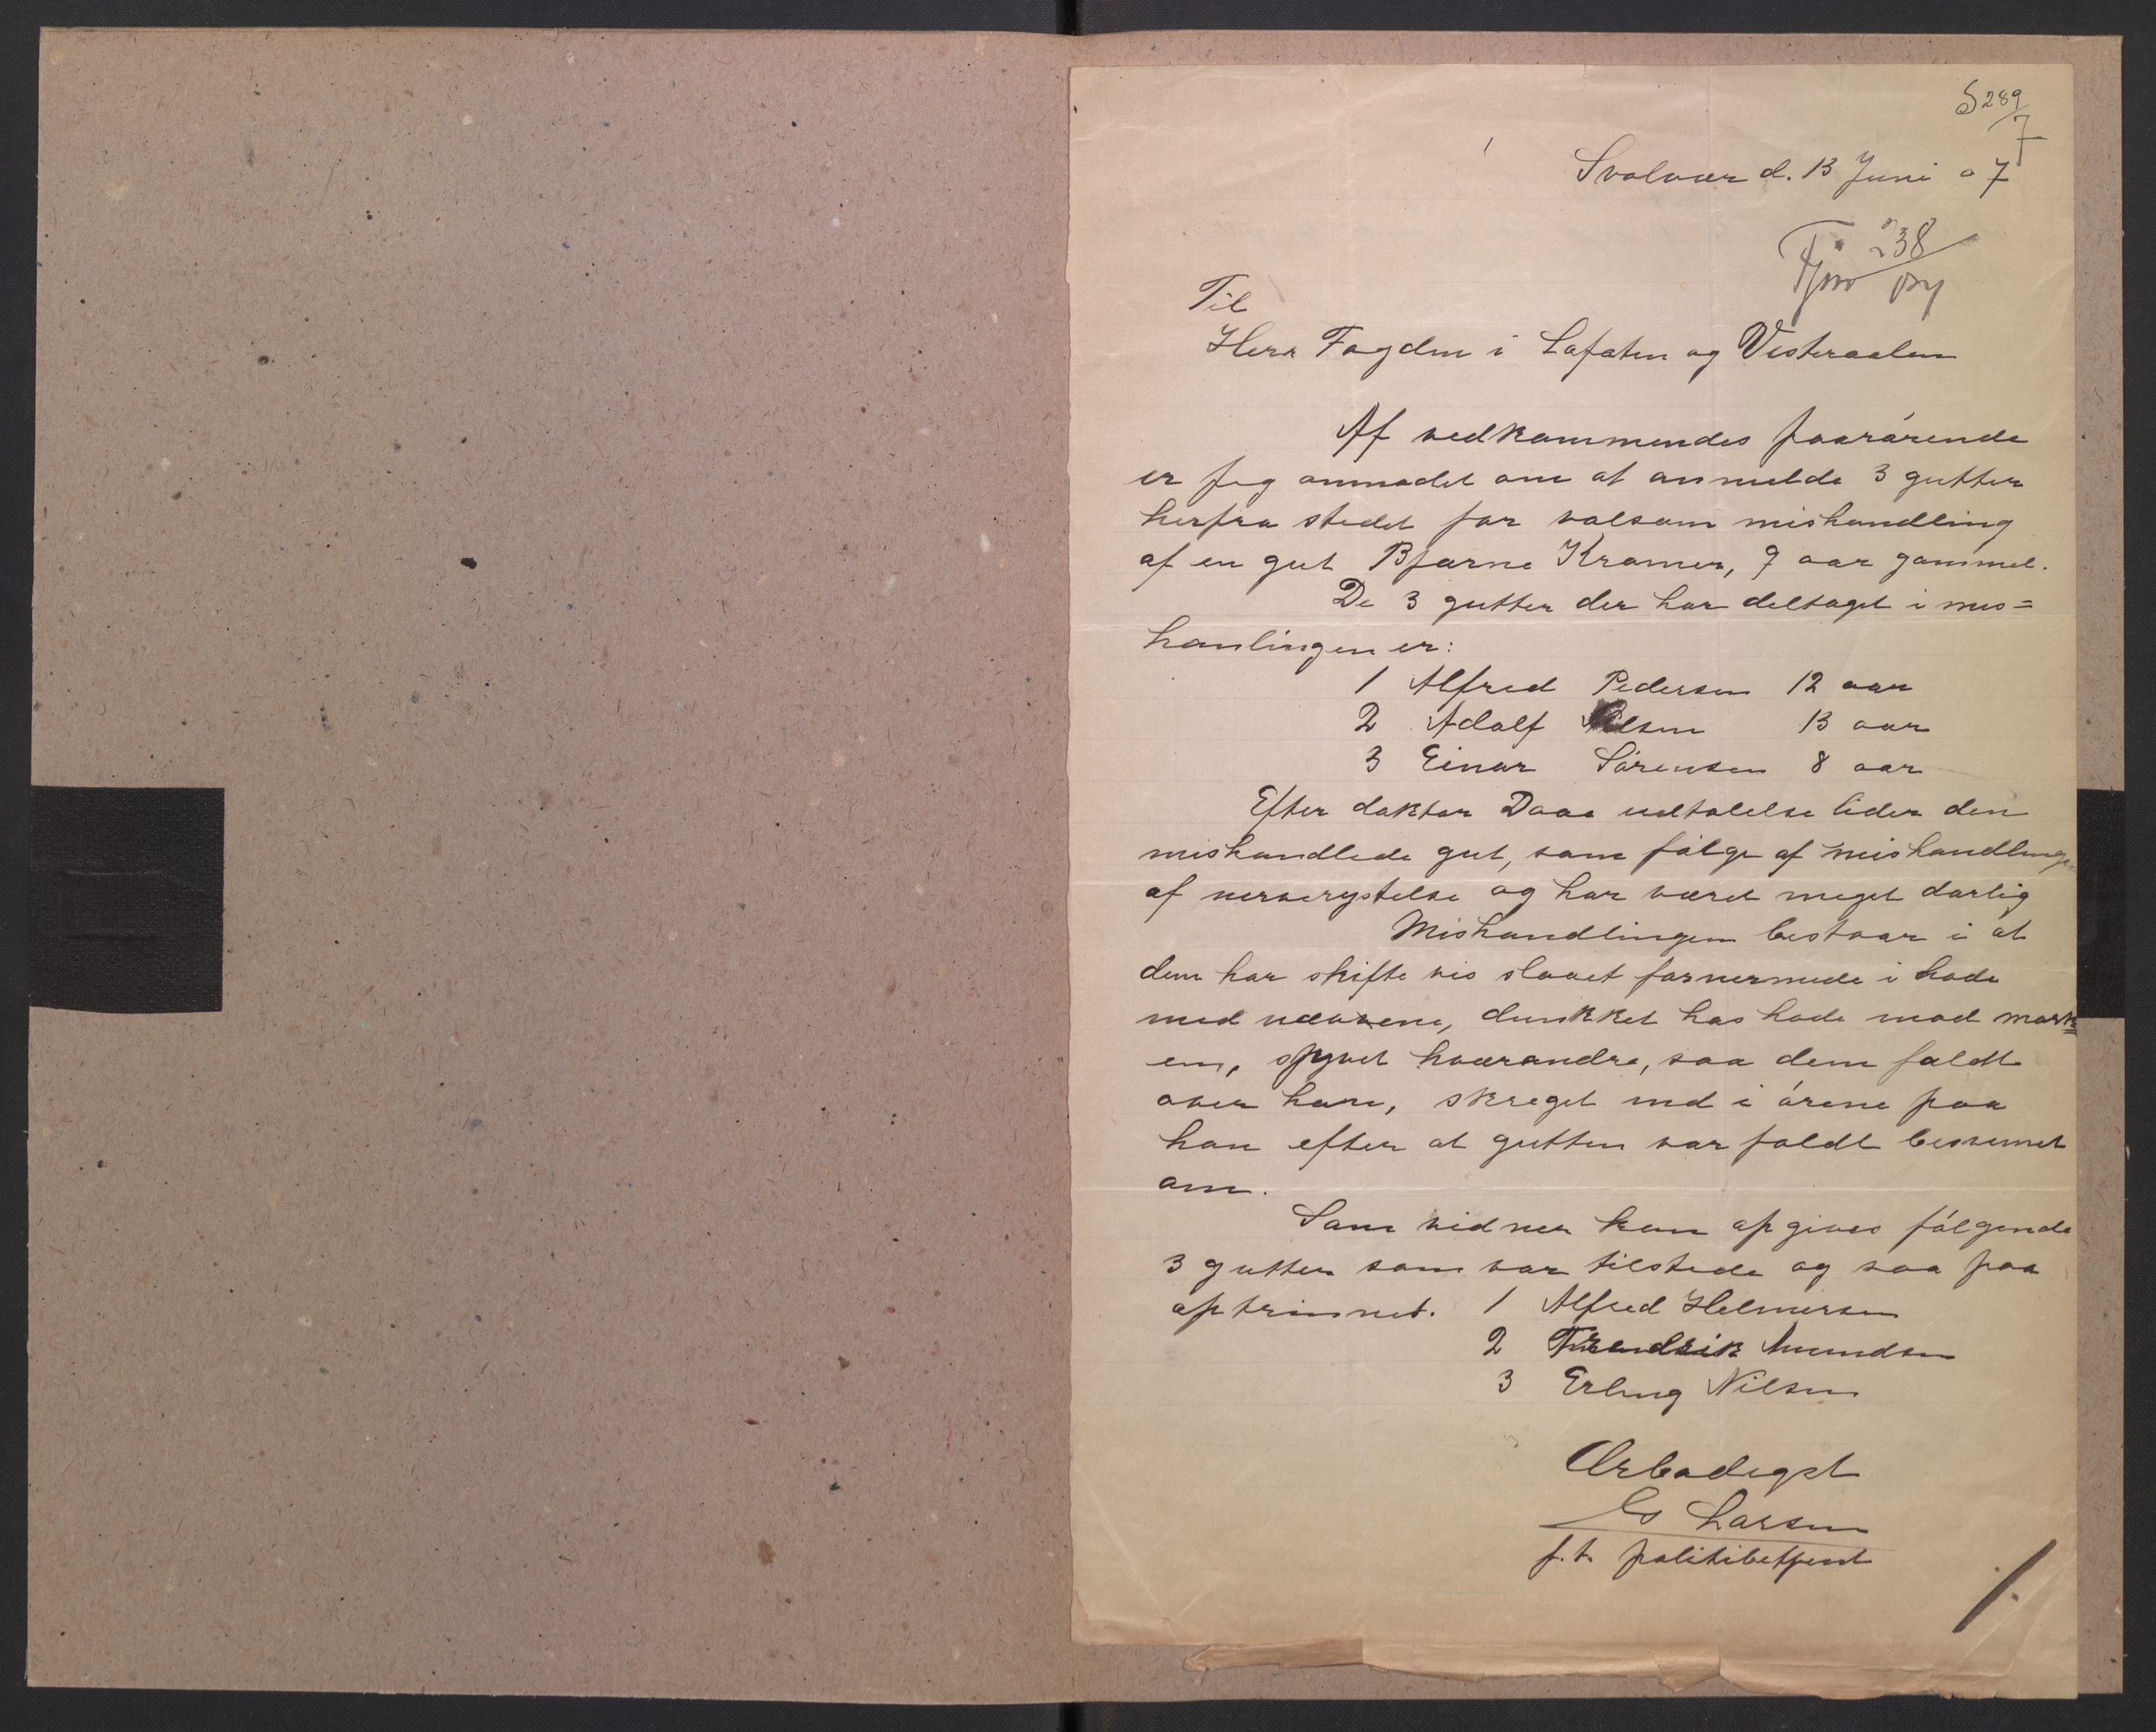 S 289
7
Svolvær d. 13 Juni 07
238
Til
Herr Fogden i Lofoten og Vesteraalen
Af vedkommendes paarárende
er jeg anmodet om at anmelde 3 gutter
herfra stedet for volsom mishandling
af en gut Bjarne Kramer, 9 aar gammel.
De 3 gutter der har deltaget i mis=
hanlingen er:
1 Alfred Pedersen 12 aar
2 Adolf Nilsen 13 aar
3 Einar Sórensen 8 aar
Efter doktor Daae udtalelse lider den
mishandlede gut, som fólge af mishandlingen
af nerverystelse og har været meget darlig
Mishandlingen bestaar i at
dem har skifte vis slaaet fornermede i hode
med nævene, dunkket has hode mod mark
en, spyvet hværandre, saa dem faldt
over han, skreget ind i órene paa
han efter at gutten var faldt besvimet
om.
Som vidner kan opgives fólgende
3 gutter som var tilstede og saa paa
optrinnet. 1 Alfred Helmersen
2 Fredrik Amundsen
3 Erling Nilsen
Ærbødigst
Larsen
f.t. politibetjent
1.